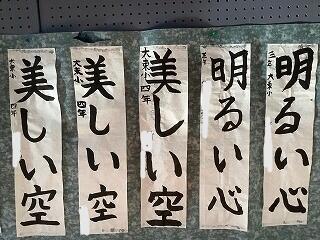 三年 大東小
明るい心
三年
明るい心
大東小 四年
美しい空
大東小 四年
美しい空
大東小 四年
美しい空